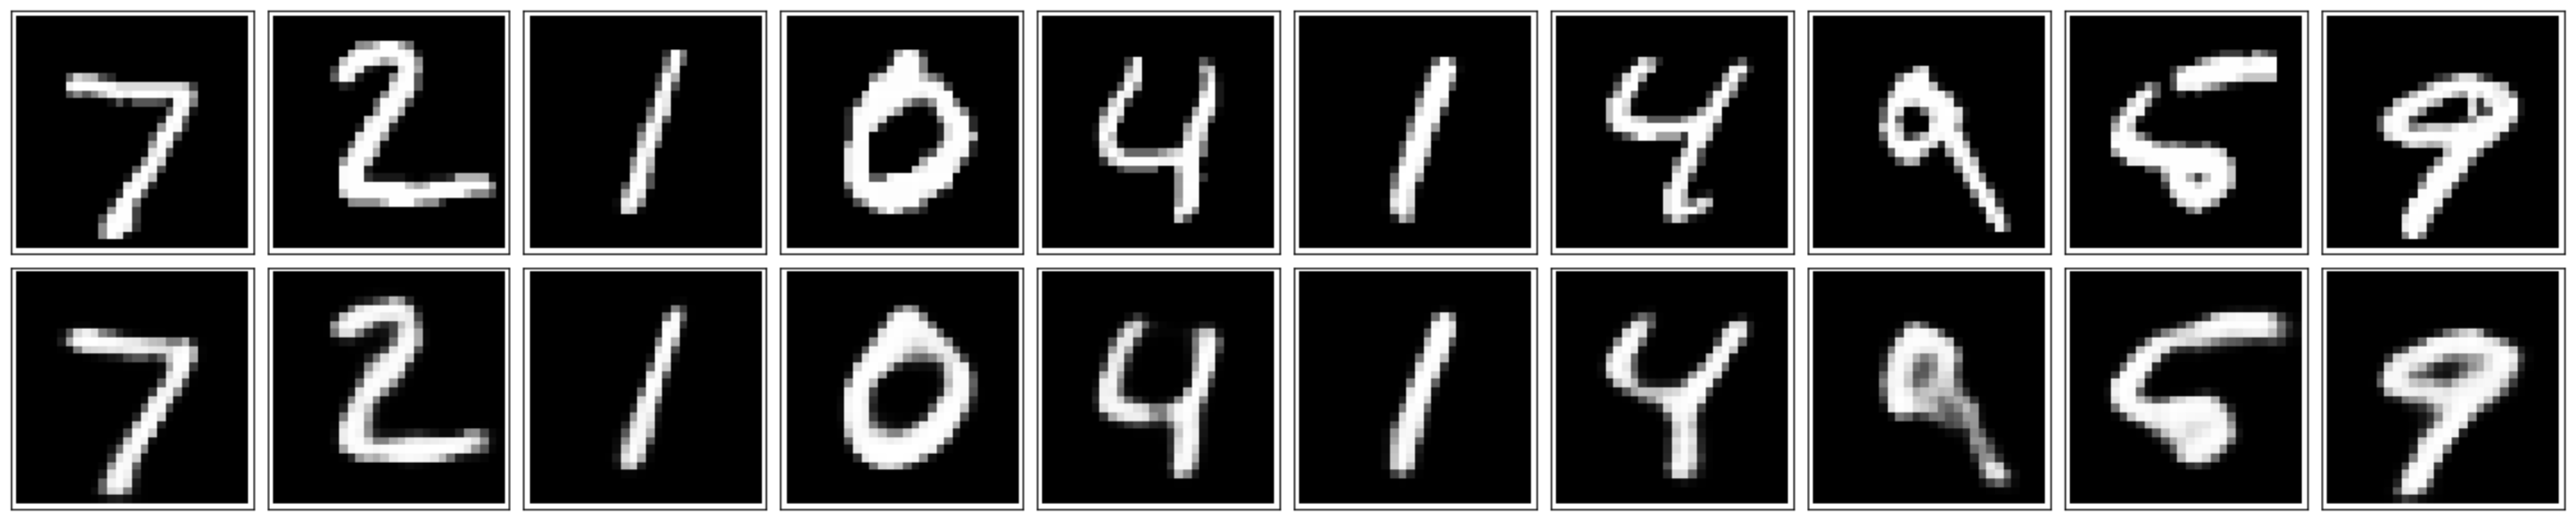 7 2 1 0 4 1 4 9 5 9
7 2 1 0 4 1 4 9 5 9